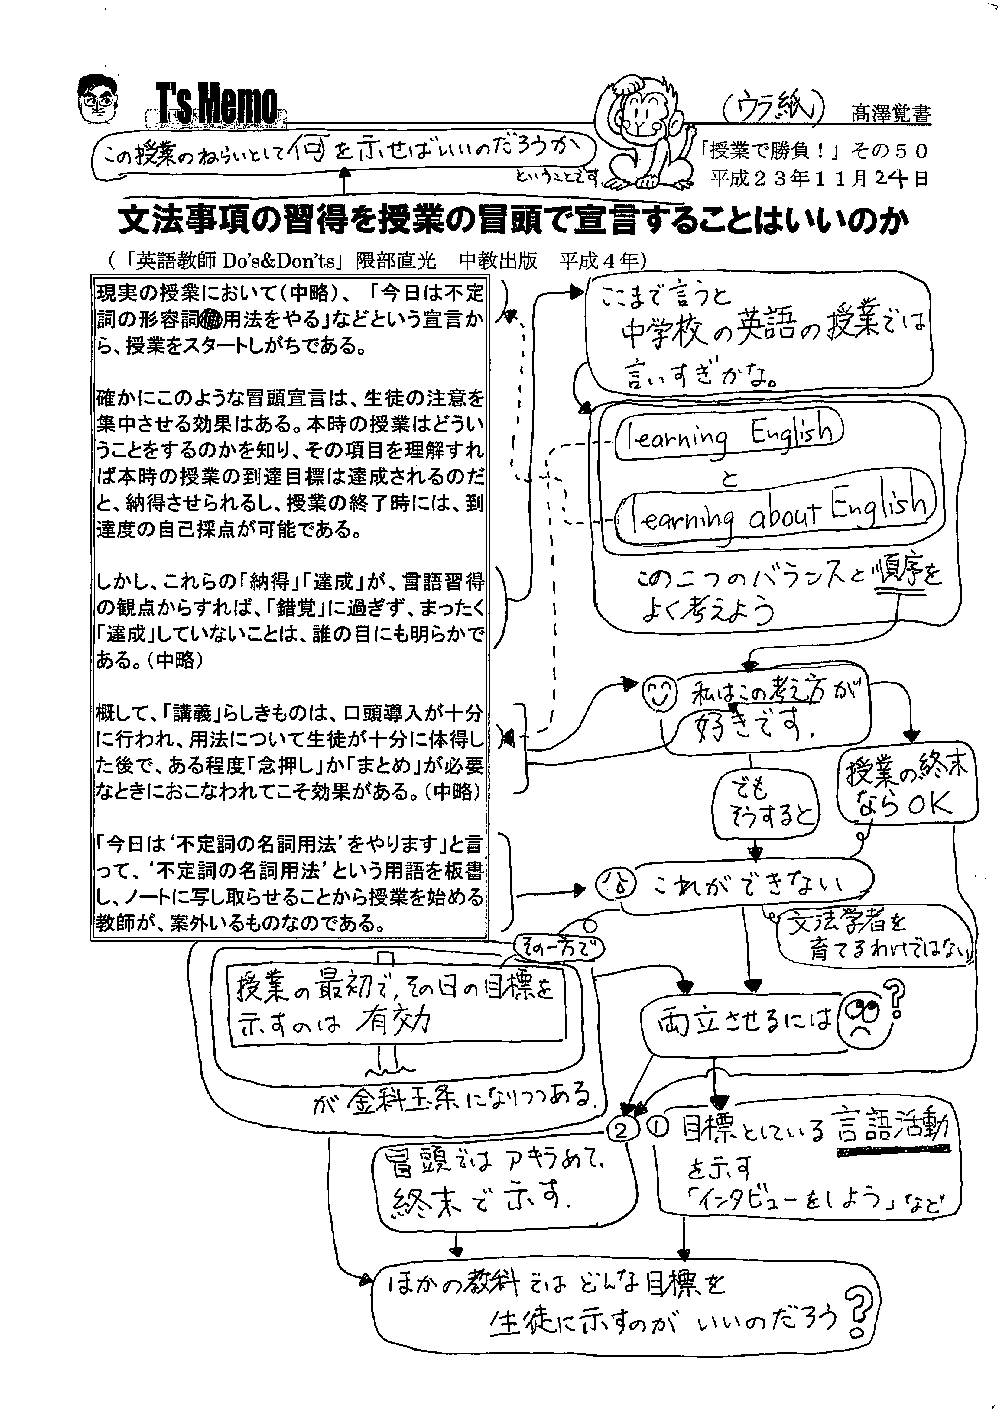 T's Memo
(ウラ紙)
高澤覚書
この授業のねらいとして何を示せばいいのだろうか
ということです
「授業で勝負！」その５０
平成２３年１１月２４日
文法事項の習得を授業の冒頭で宣言することはいいのか
（「英語教師 Do's&Don'ts」隈部直光　中教出版　平成４年）
現実の授業において（中略）、「今日は不定
詞の形容詞的用法をやる」などという宣言か
ら、授業をスタートしがちである。
確かにこのような冒頭宣言は、生徒の注意を
集中させる効果はある。本時の授業はどうい
うことをするのかを知り、その項目を理解すれ
ば本時の授業の到達目標は達成されるのだ
と、納得させられるし、授業の終了時には、到
達度の自己採点が可能である。
しかし、これらの「納得」「達成」が、言語習得
の観点からすれば、「錯覚」に過ぎず、まったく
「達成」していないことは、誰の目にも明らかで
ある。（中略）
概して、「講義」らしきものは、口頭導入が十分
に行われ、用法について生徒が十分に体得し
た後で、ある程度「念押し」か「まとめ」が必要
なときにおこなわれてこそ効果がある。（中略）
「今日は‘不定詞の名詞用法’をやります」と言
って、‘不定詞の名詞用法’という用語を板書
し、ノートに写し取らせることから授業を始める
教師が、案外いるものなのである。
ここまで言うと
中学校の英語の授業では
言いすぎかな。
learning English
と
learning about English
この二つのバランスと順序を
よく考えよう
私はこの考え方が
好きです.
授業の終末
ならOK
でも
そうすると
これができない
文法学者を
育てるわけではない
その一方で
授業の最初で,その日の目標を
示すのは 有効
が 金科玉条になりつつある.
両立させるには
?
① 目標としている言語活動
を示す
「インタビューをしよう」など
②
冒頭ではアキラめて,
終末で示す.
ほかの教科ではどんな目標を
生徒に示すのが いいのだろう?